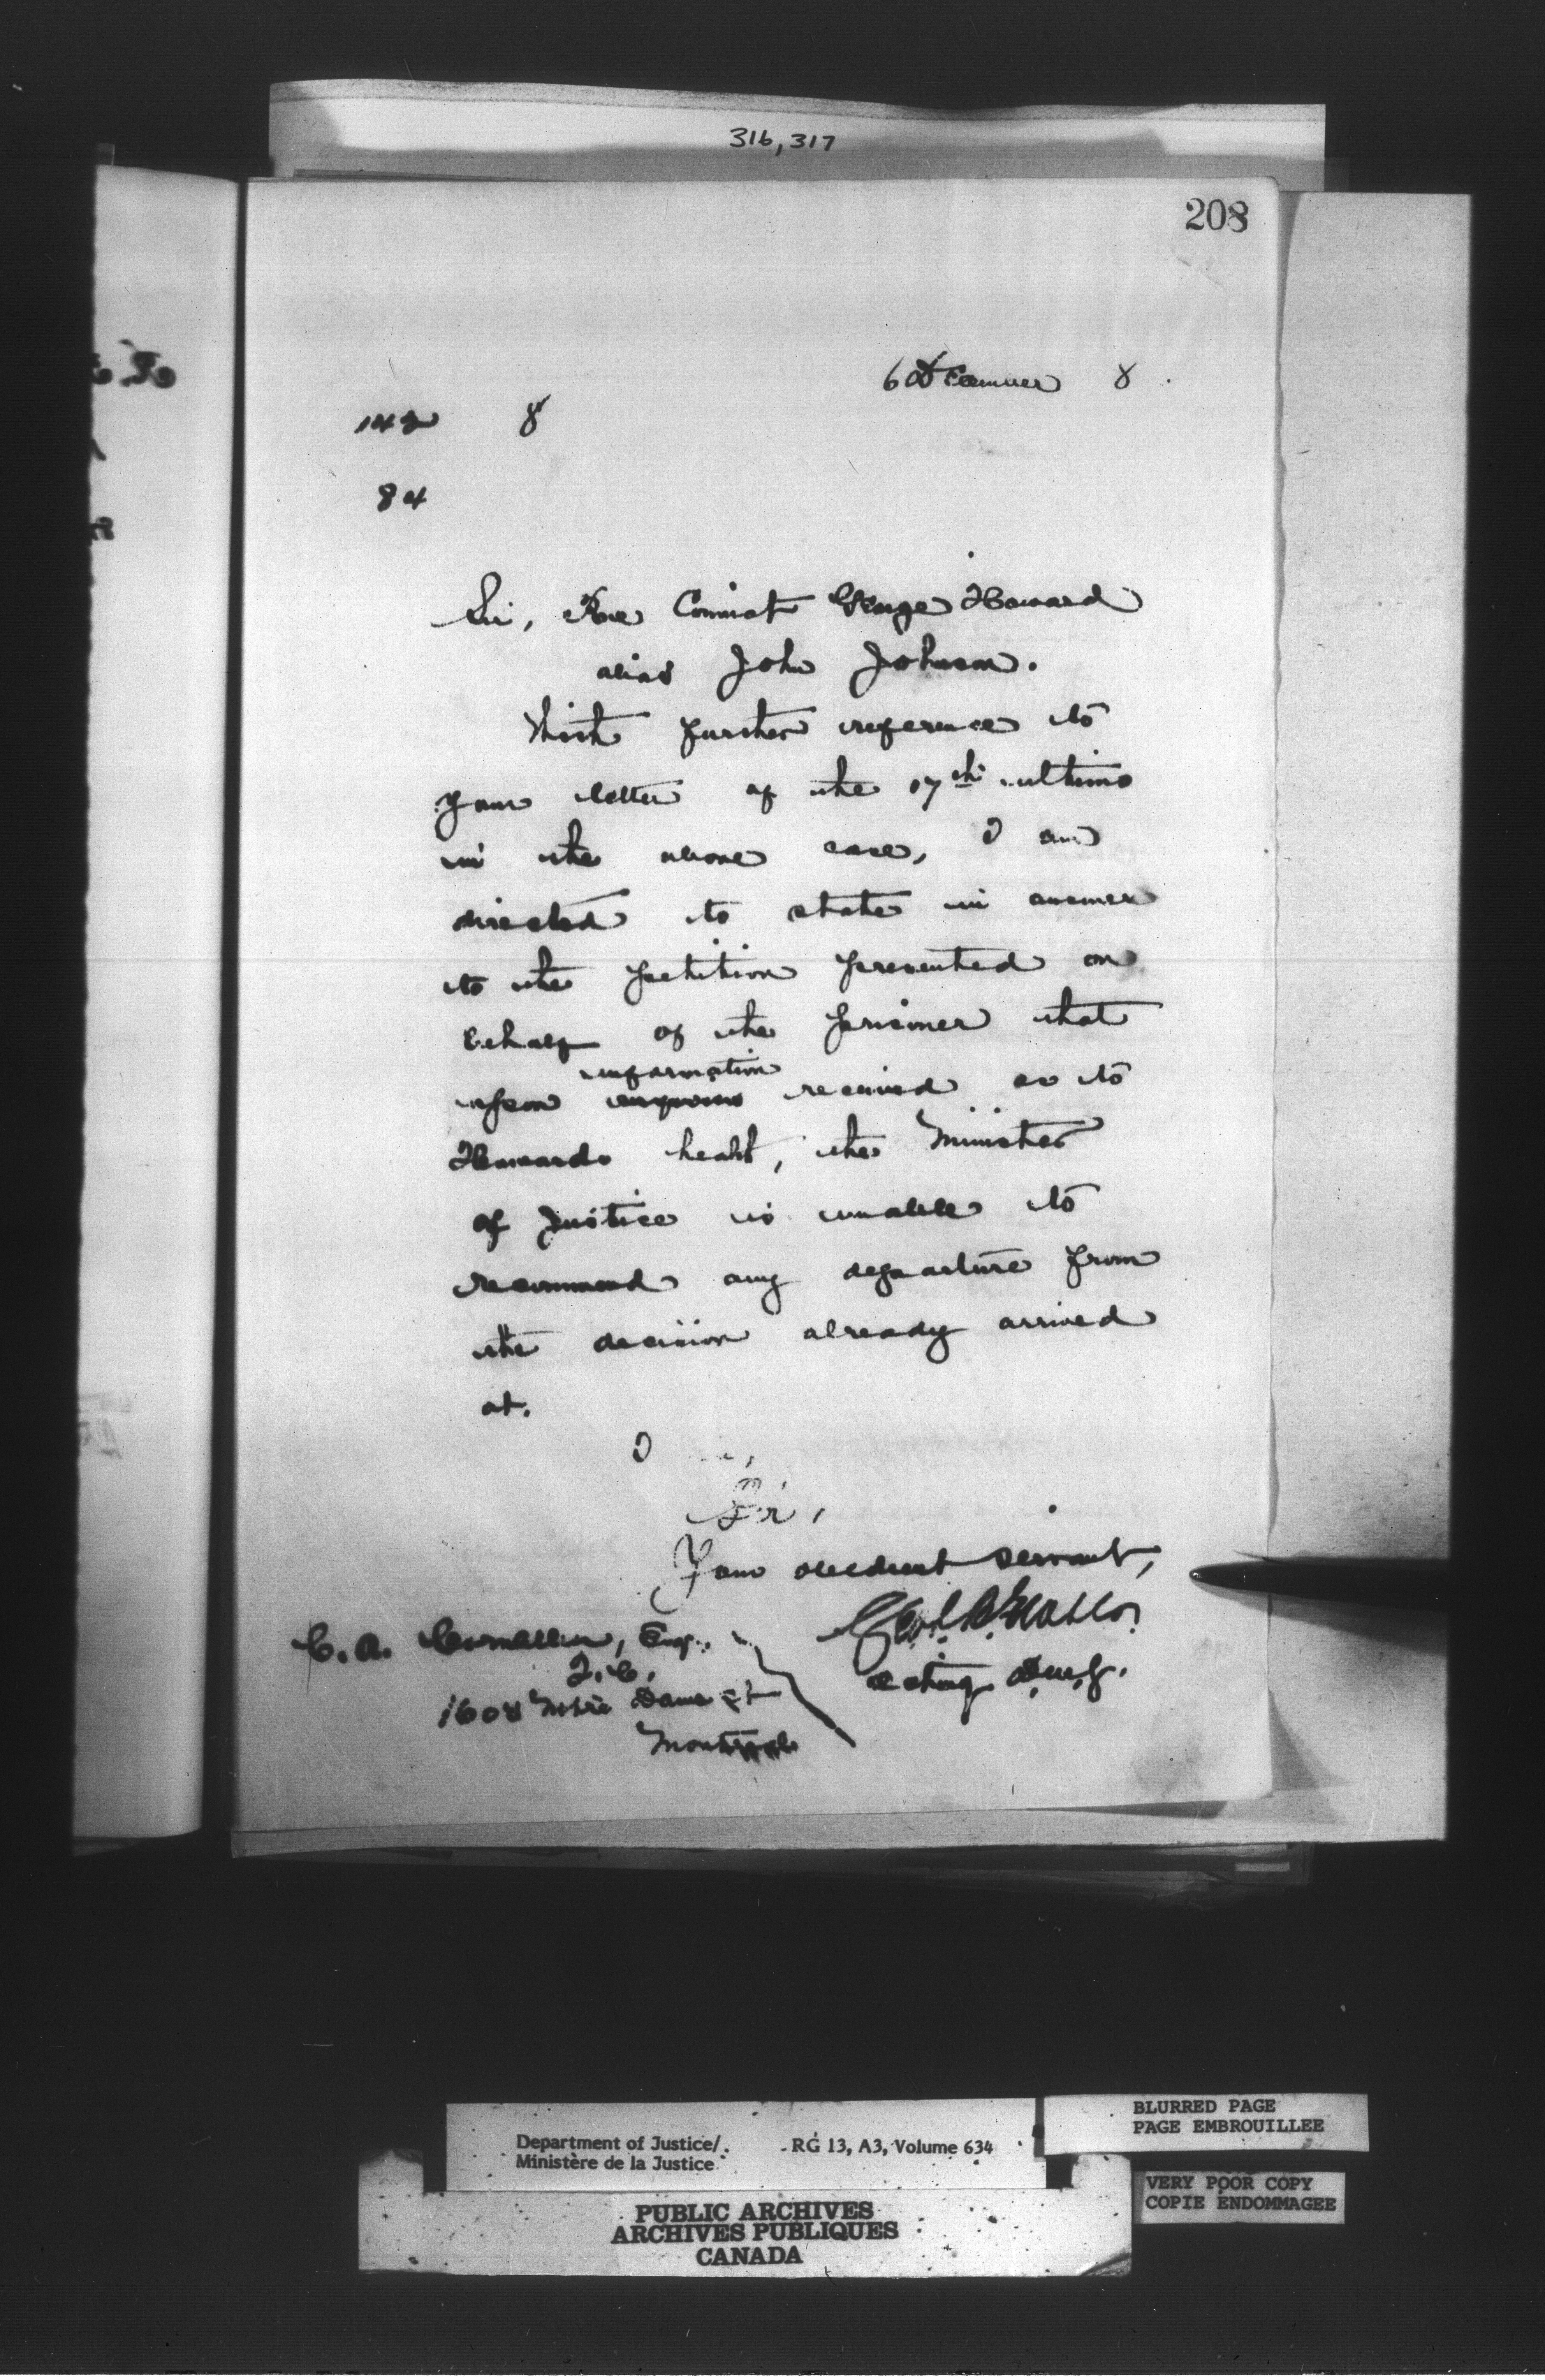 316, 317
208
6 December 8
142 8
84
Sir, Re Convict George Howard
alias John Johnson.
With further reference to
your letter of the 17th ultimo
in the above case, I am
directed to state in answer
to the petition presented on
behalf of the prisoner that
information
upon received as to
Howards health, the Minister
of Justice is unable to
recommend any departure from
the decision already arrived
at.
I
Sir,
Your obedient servant,
acting D.m.J.
C. A. Esq.
Q.C.
1608 Notre Dame St
Montreal
Department of Justice/
Ministère de la Justice
RG 13, A3, Volume 634
BLURRED PAGE
PAGE EMBROUILLEE
VERY POOR COPY
COPIE ENDOMMAGEE
PUBLIC ARCHIVES
ARCHIVES PUBLIQUES
CANADA